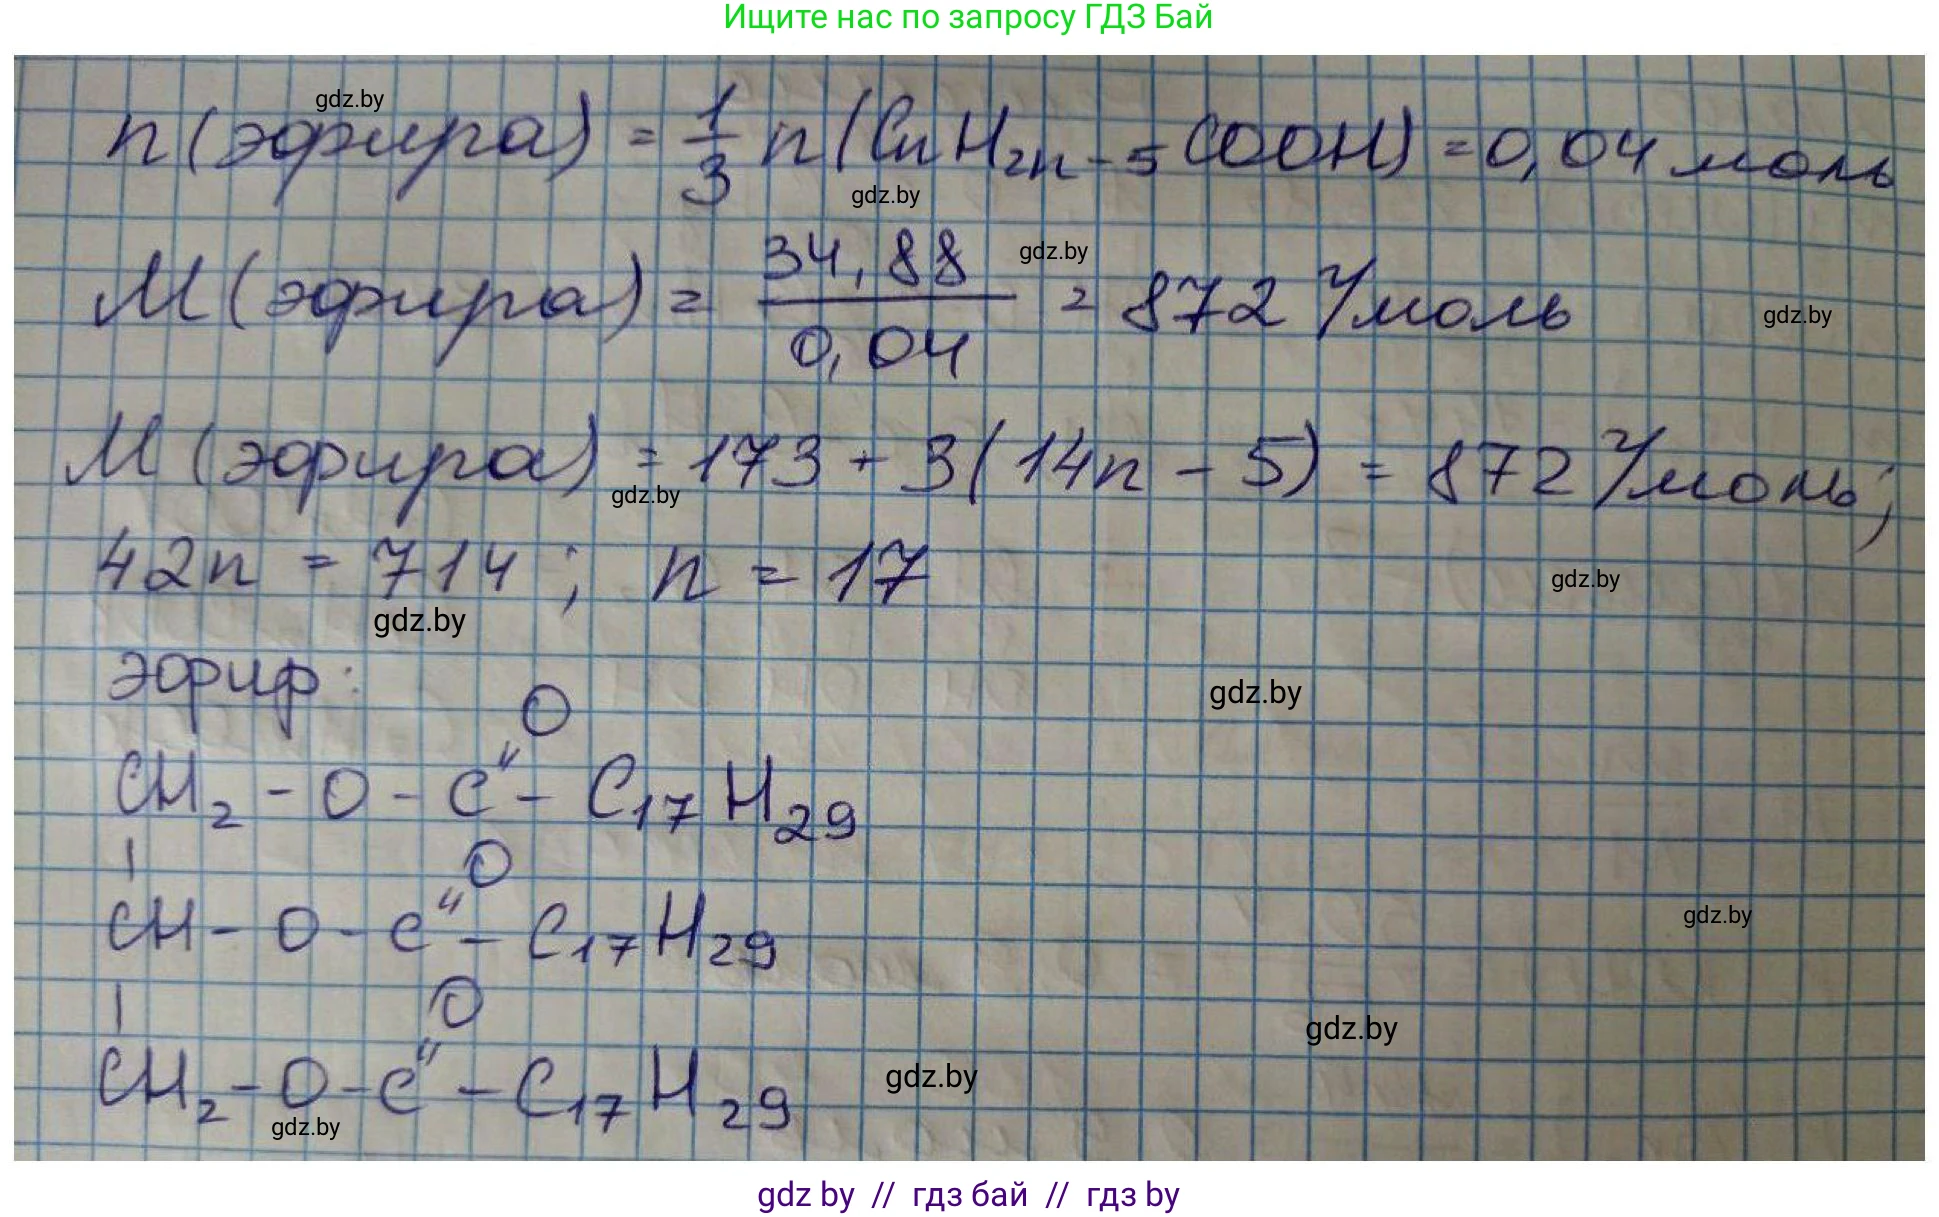 Ищите нас по запросу ГДЗ Бай
gdz.by
n (эфира) = 1/3 n (CnH2n-5COOH) = 0,04 моль
gdz.by
M (эфира) = 34,88 / 0,04 = 872 г/моль
gdz.by
gdz.by
M (эфира) = 173 + 3(14n - 5) = 872 г/моль;
gdz.by
42n = 714; n = 17
gdz.by
gdz.by
эфир:
gdz.by
O
"
CH2 - O - C - C17H29
| O
"
CH - O - C - C17H29
gdz.by
| O
gdz.by
"
CH2 - O - C - C17H29
gdz.by
gdz.by
gdz by // гдз бай // гдз by